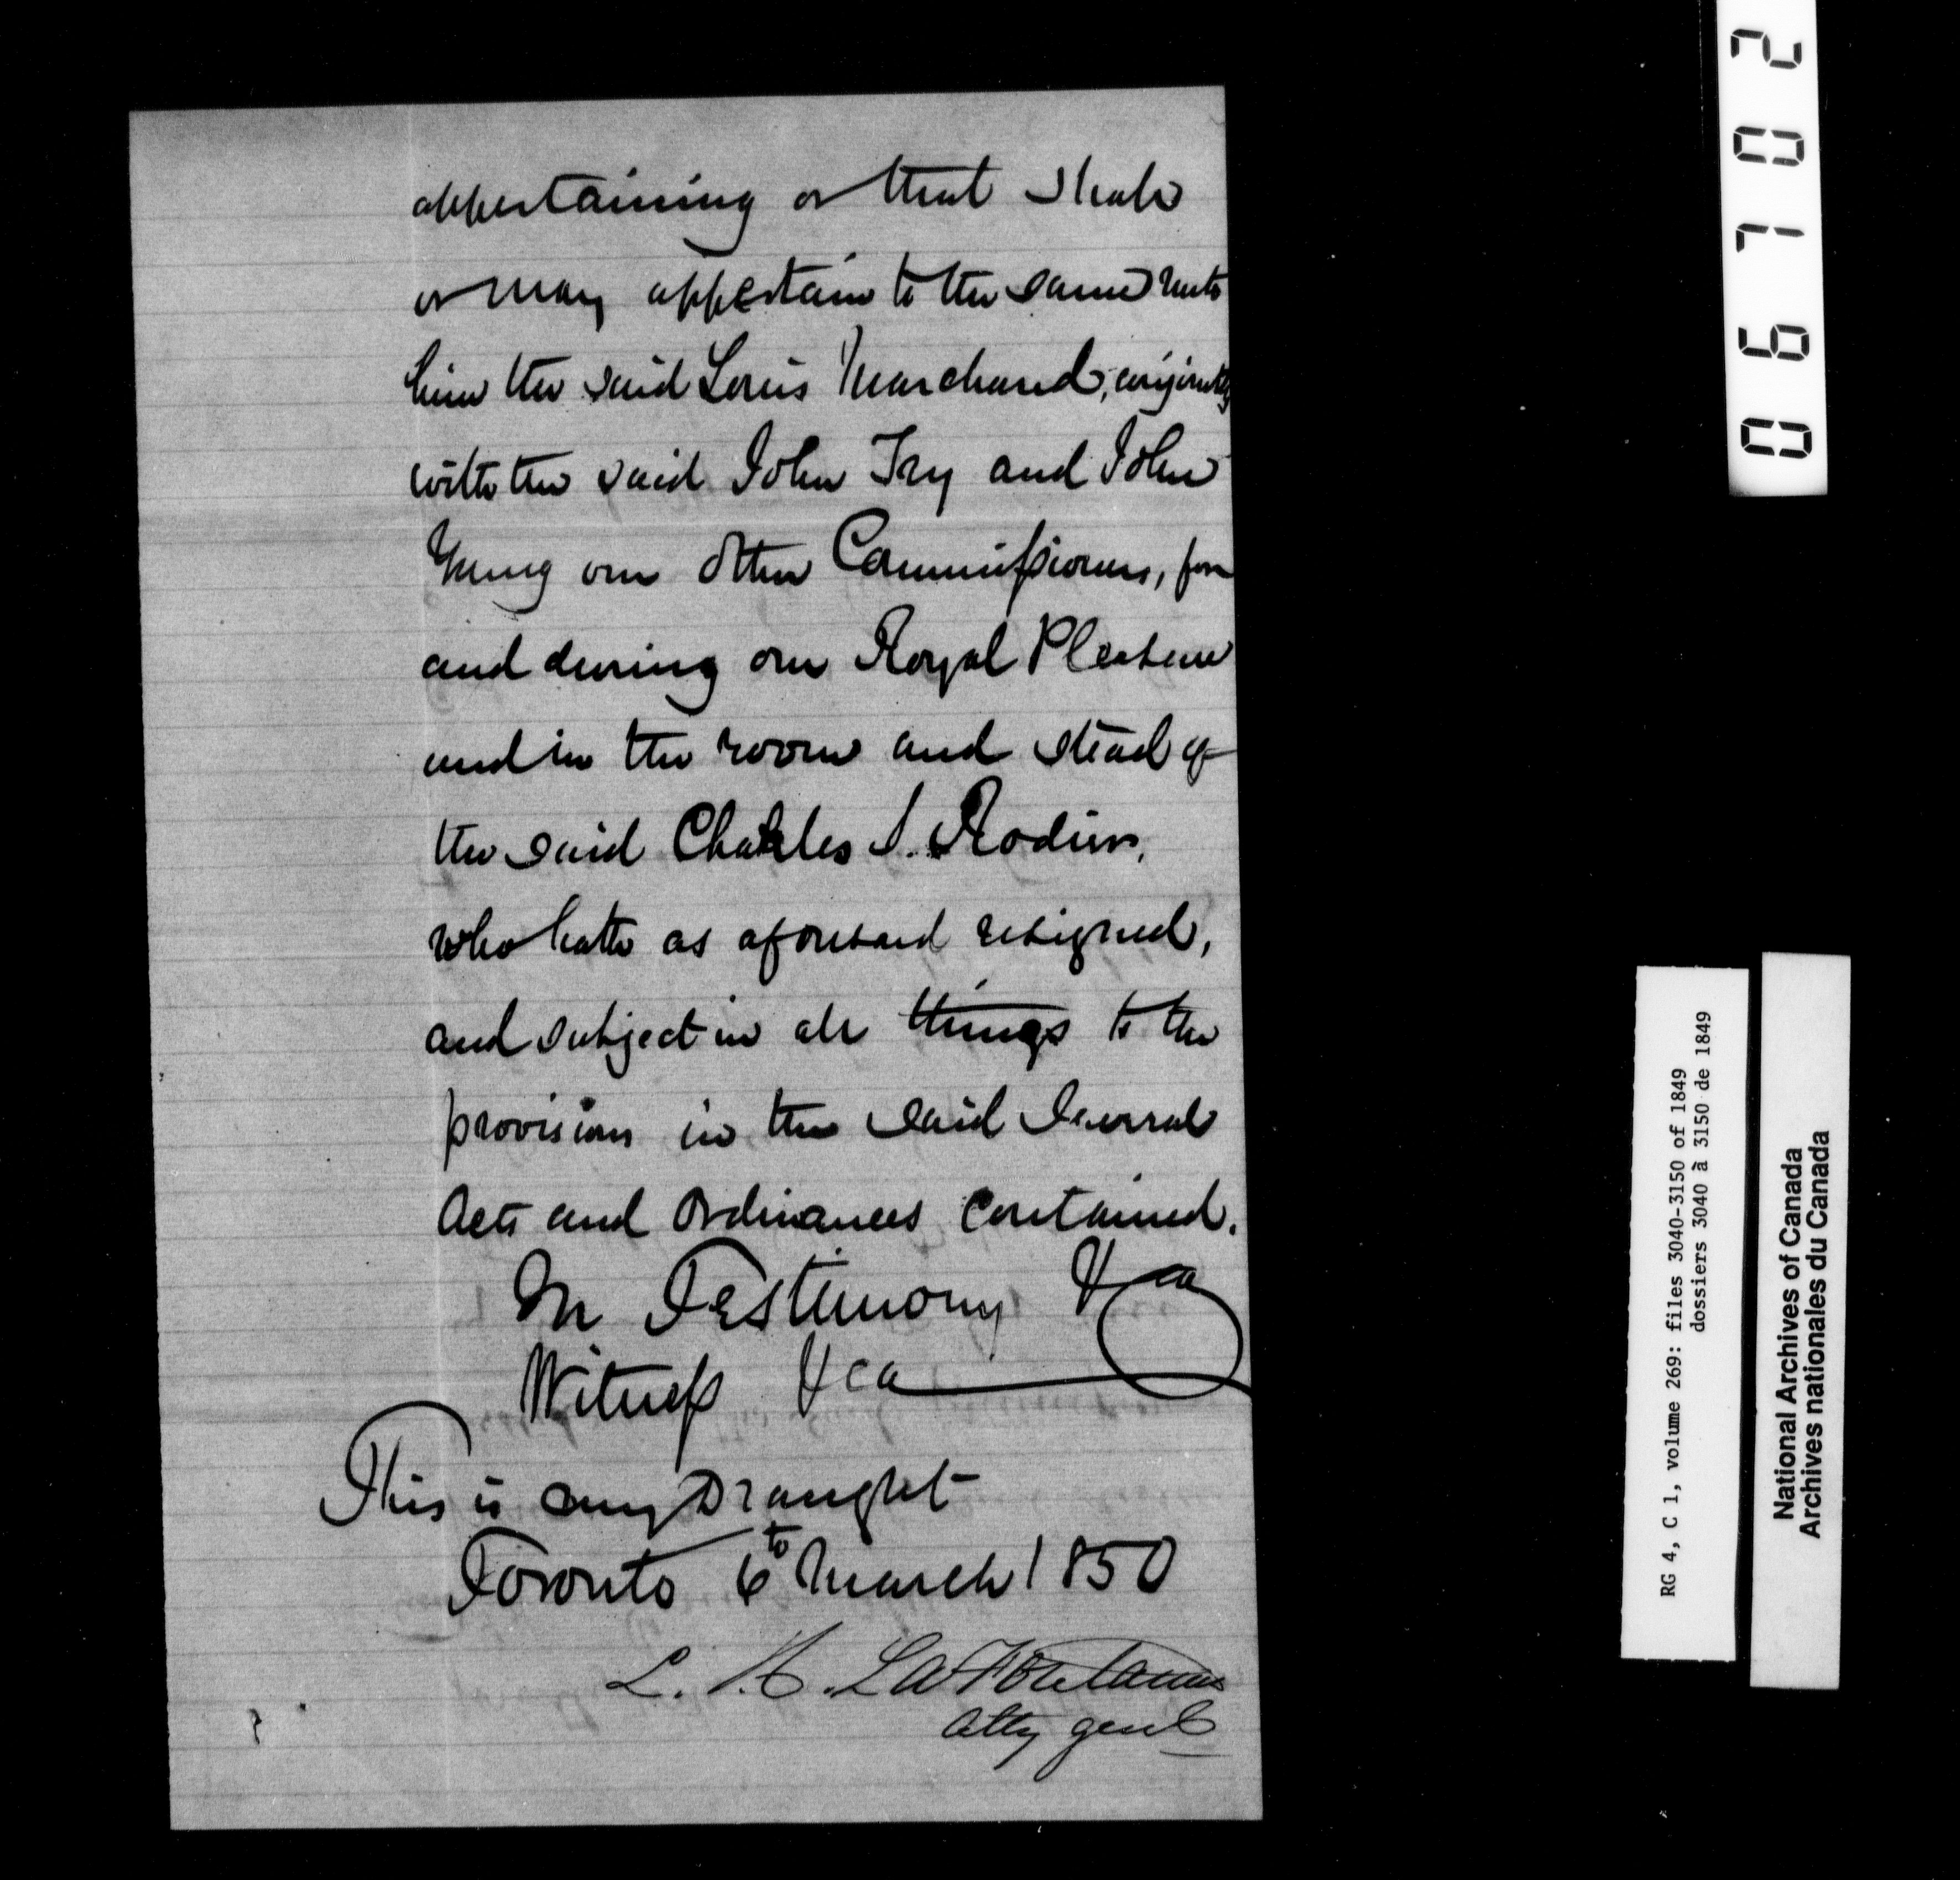 appertaining or that shall
or may appertain to the same unto
him the said Louis Marchand, conjointly
with the said John Try and John
Young our other Commissioners, for
and during our Royal Pleasure
and in the room and stead of
the said Charles S. Rodier,
who hath as aforesaid resigned,
and subject in all things to the
provisions in the said several
Acts and Ordinances contained.
In Testimony &ca
Witness &ca
This is my Draught
Toronto 6th March 1850
L. H. LaFontaine
Atty genl
06702
RG 4, C 1, volume 269: files 3040-3150 of 1849
dossiers 3040 à 3150 de 1849
National Archives of Canada
Archives nationales du Canada